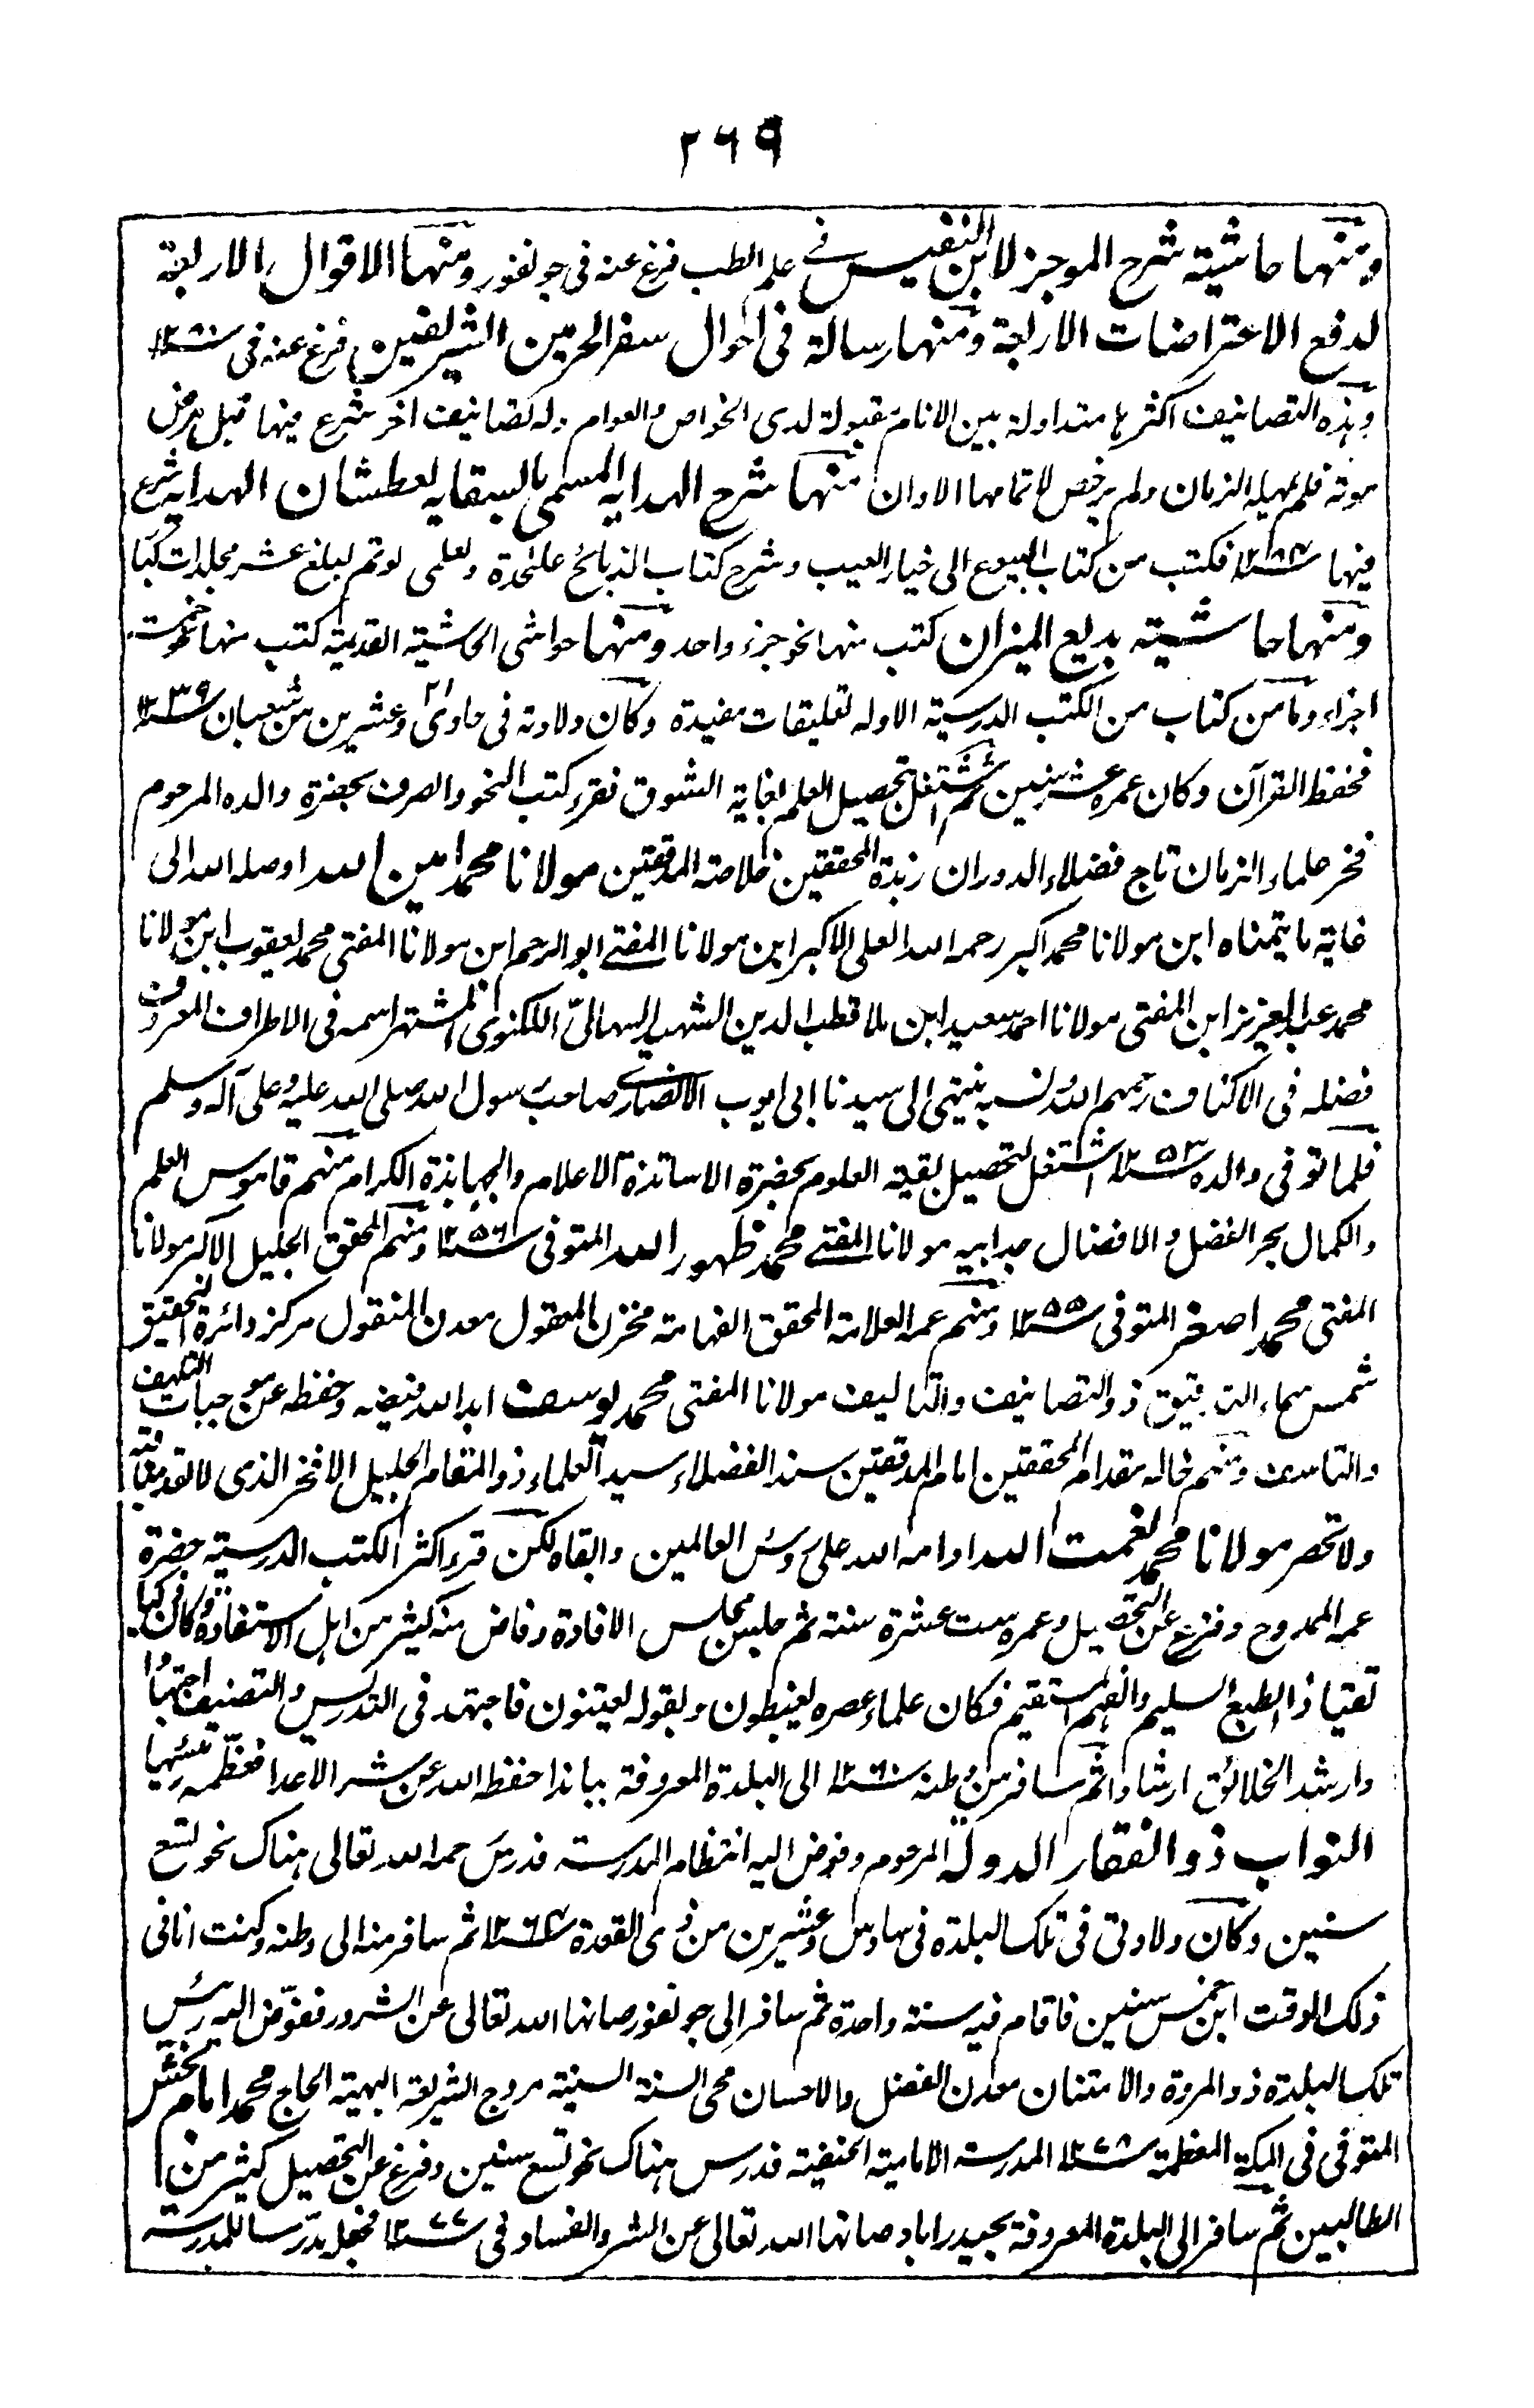 ٢٦٩
ومنها حاشیته شرح الموجز لابن النفیس فی علم الطب فرغ عنه فی جونفور ومنها الاقوال الاربعة
لدفع الاعتراضات الاربعة ومنها رسالة فی احوال سفر الحرمین الشریفین فرغ عنه فی سنه
وهذه التصانیف اکثرها متداولة بین الانام مقبولة لدی الخواص والعوام وله تصانیف اخر شرع فیها قبل مرض
موته فلم یمهله الزمان ولم یرخص لاتمامها الاوان منها شرح الهدایه المسمی بالسقایه لعطشان الهدایه شرع
فیها فکتب من کتاب البیوع الی خیار العیب وشرح کتاب الذبائح علٰحدة ولعلمی لو تم لبلغ عشر مجلدات کبا
ومنها حاشیته بدیع المیزان کتب منها نحو جزء واحد ومنها حواشی الحاشیة القدیمة کتب منها نحو خمسة
اجزاء وما من کتاب من الکتب الدرسیة الا وله تعلیقات مفیدة وکان ولادته فی حادی ٢١ وعشرین من شعبان سنه ١٢٣٩
فحفظ القرآن وکان عمره عشر سنین ثم اشتغل بتحصیل العلم بغایة الشوق فقرء کتب النحو والصرف بحضرة والده المرحوم
فخر علماء الزمان تاج فضلاء الدوران زبدة المحققین خلاصة المدققین مولانا محمد امین الله اوصله الله الی
غایة ما یتمناه ابن مولانا محمد اکبر رحمه الله العلی الاکبر ابن مولانا المفتے ابو الرحم ابن مولانا المفتی محمد یعقوب ابن مولانا
محمد عبد العزیز ابن المفتی مولانا احمد سعید ابن ملا قطب الدین الشهید السهالیّ اللکنوی المشتهر اسمه فی الاطراف المعروف
فضله فی الاکناف رحمهم الله ونسبه ینتهی الی سیدنا ابی ایوب الانصاری صاحب رسول الله صلی الله علیه وعلی آله وسلم
فلما توفی والده سنه ١٢٥٣ اشتغل لتحصیل بقیة العلوم بحضرة الاساتذة الاعلام والجهابذة الکرام منهم قاموس العلم
والکمال بحر الفضل والافضال جد ابیه مولانا المفتے محمد ظهور الله المتوفی سنه ١٢٥٦ ومنهم المحقق الجلیل الاکبر مولانا
المفتی محمد اصغر المتوفی سنه ١٢٥٥ ومنهم عمه العلامة المحقق الفهامة مخزن المعقول معدن المنقول مرکز دائرة التحقیق
شمس سماء التدقیق ذو التصانیف والتالیف مولانا المفتی محمد یوسف ابد الله فیضه وحفظه عن موجبات التلهف
والتاسف ومنهم خاله مقدام المحققین امام المدققین سند الفضلاء سید العلماء ذو المقام الجلیل الافخر الذی لا تعد مناقبه
ولا تحصر مولانا محمد نعمت الله ادامه الله علی رؤس العالمین وابقاه لکن قرء اکثر الکتب الدرسیة بحضرة
عمه الممدوح وفرغ عن التحصیل وعمره ست عشرة سنة ثم جلس مجلس الافادة وفاض منه کثیر من اهل الاستفادة وکان ذکیا
تقیا ذا الطبع السلیم والفهم المستقیم فکان علماء عصره یغبطون وبقوله یعتنون فاجتهد فی التدریس والتصنیف اجتهادا
وارشد الخلائق ارشادا ثم سافر من وطنه سنه ١٢٦٠ الی البلدة المعروفة بباندا حفظه الله عن شر الاعدا فعظّمه رئیسها
النواب ذو الفقار الدوله المرحوم وفوض الیه انتظام المدرسته فدرس رحمه الله تعالی هناک نحو تسع
سنین وکان ولادتی فی تلک البلدة فی سادس وعشرین من ذی القعدة سنه ١٢٦٤ ثم سافر منه الی وطنه وکنت انا فی
ذلک الوقت ابن خمس سنین فاقام فیه سنة واحدة ثم سافر الی جونفور صانها الله تعالی عن الشرور ففوّض الیه رئیس
تلک البلدة ذو المروة والامتنان معدن الفضل والاحسان محی السنة السنیة مروج الشریعة البهیة الحاج محمد امام بخش
المتوفی فی المکة المعظمة سنه ١٢٧٨ المدرسة الامامیة الحنفیة فدرس هناک نحو تسع سنین وفرغ عن التحصیل کثیر من
الطالبین ثم سافر الی البلدة المعروفة بحیدراباد صانها الله تعالی عن الشر والفساد فی سنه ١٢٧٧ فجعل مدرّسا للمدرسة